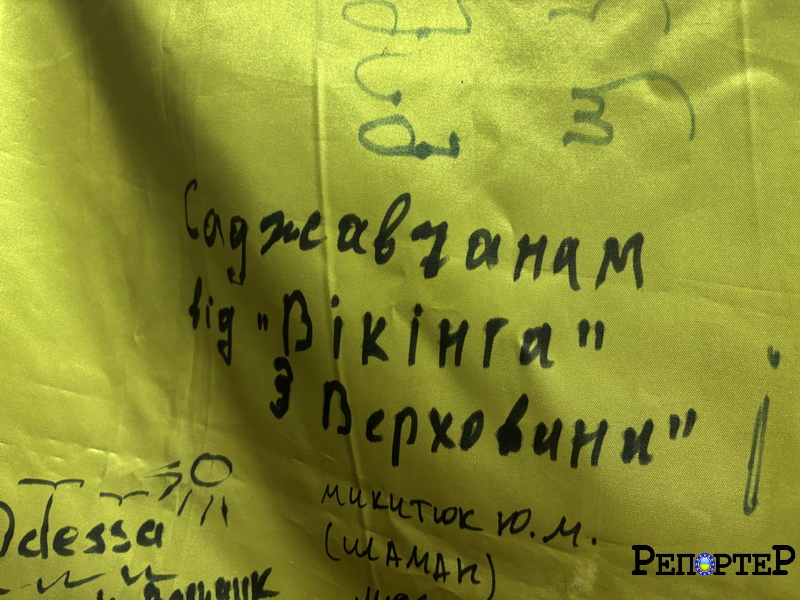 Саджавчанам
від "Вікінга"
З Верховини"
Odessa
МИКИТЮК Ю.М.
(ШАМАН)
РЕПОРТЕР